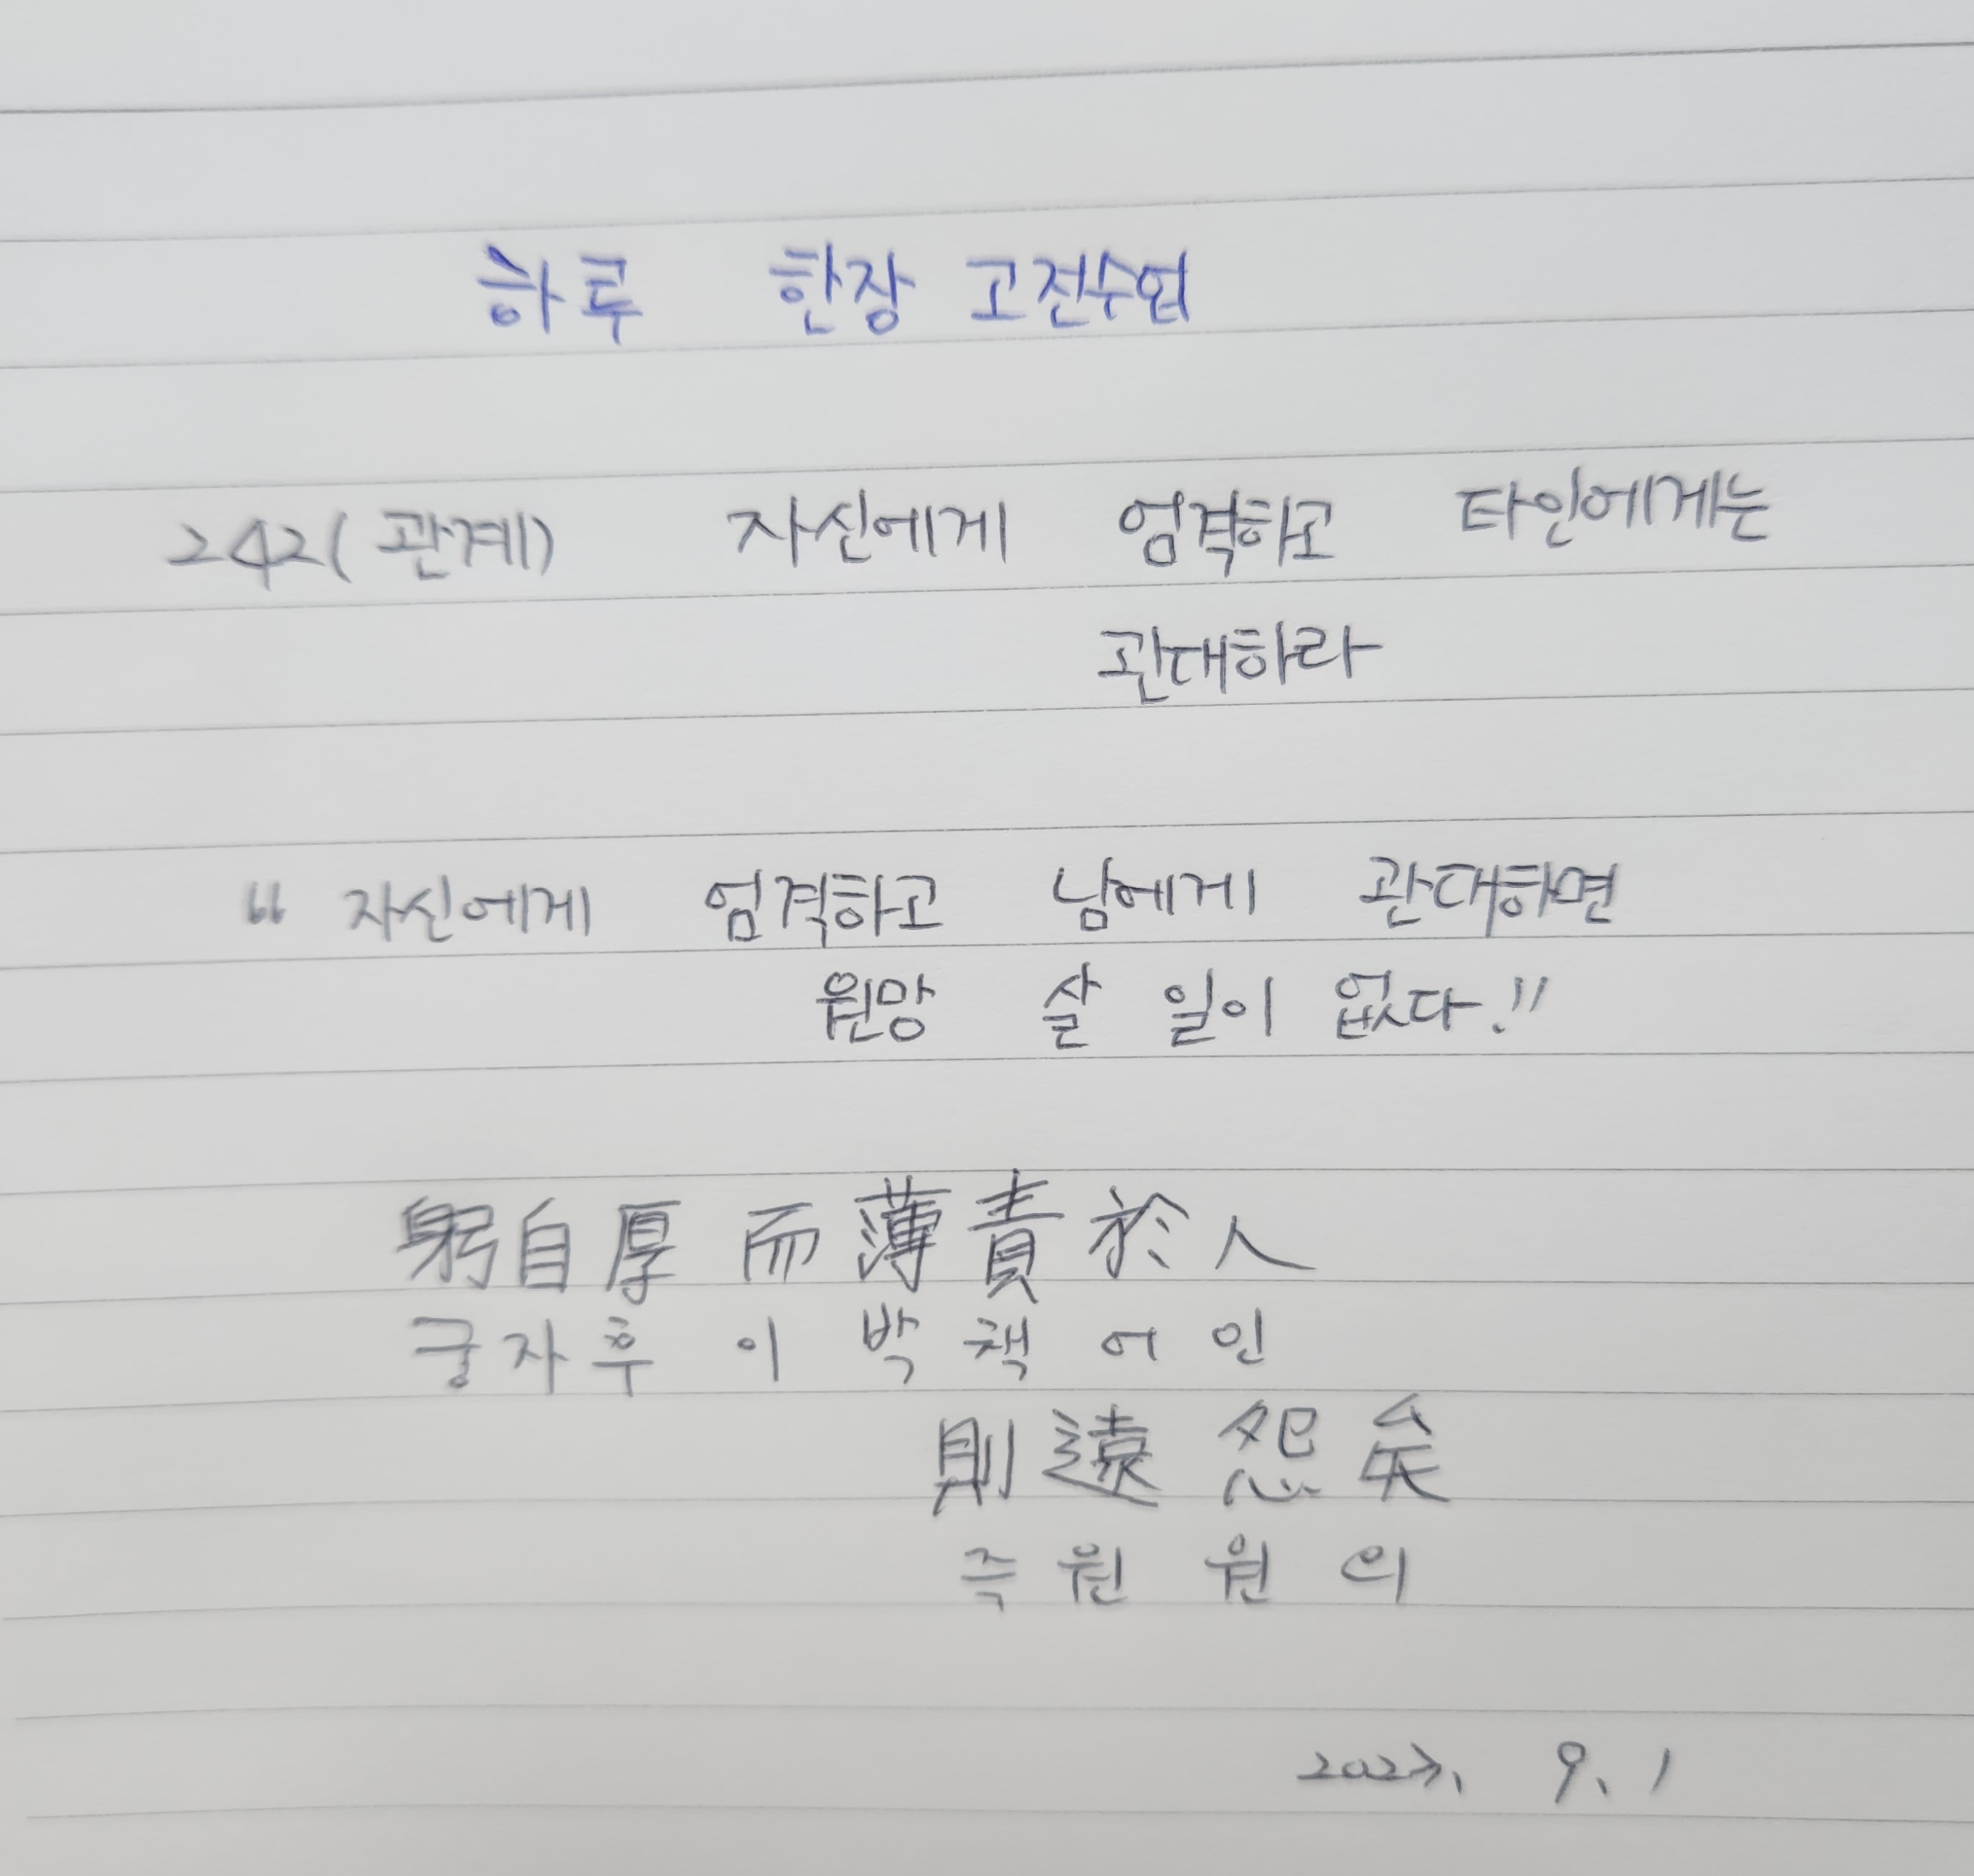 하루 한장 고전수업
242(관계) 자신에게 엄격하고 타인에게는
관대하라
“ 자신에게 엄격하고 남에게 관대하면
원망 살 일이 없다.”
躬自厚 而薄責於人
궁자후 이 박 책 어 인
則遠怨矣
즉 원 원 의
2023. 9. 1